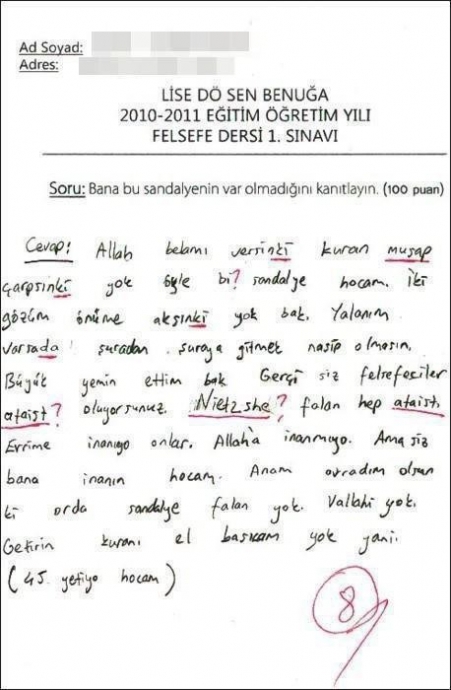 Ad Soyad:
Adres:
LİSE DÖ SEN BENUĞA
2010-2011 EĞİTİM ÖĞRETİM YILI
FELSEFE DERSİ 1. SINAVI
Soru: Bana bu sandalyenin var olmadığını kanıtlayın. (100 puan)
Cevap: Allah belamı versinki kuran muşap
çarpsinki yok öyle bi? sandalye hocam. İki
gözüm önüme aksınki yok bak. Yalanım
varsada şuradan şuraya gitmek nasip olmasın.
Büyük yemin ettim bak Gerçi siz felsefeciler
ataist? oluyorsunuz. Nietzshe? falan hep ataist.
Evrime inanıyo onlar. Allah'a inanmıyo. Ama siz
bana inanın hocam. Anam avradım olsun
ki orda sandalye falan yok. Vallahi yok.
Getirin kuranı el basıcam yok yani.
(45 yetiyo hocam)
8